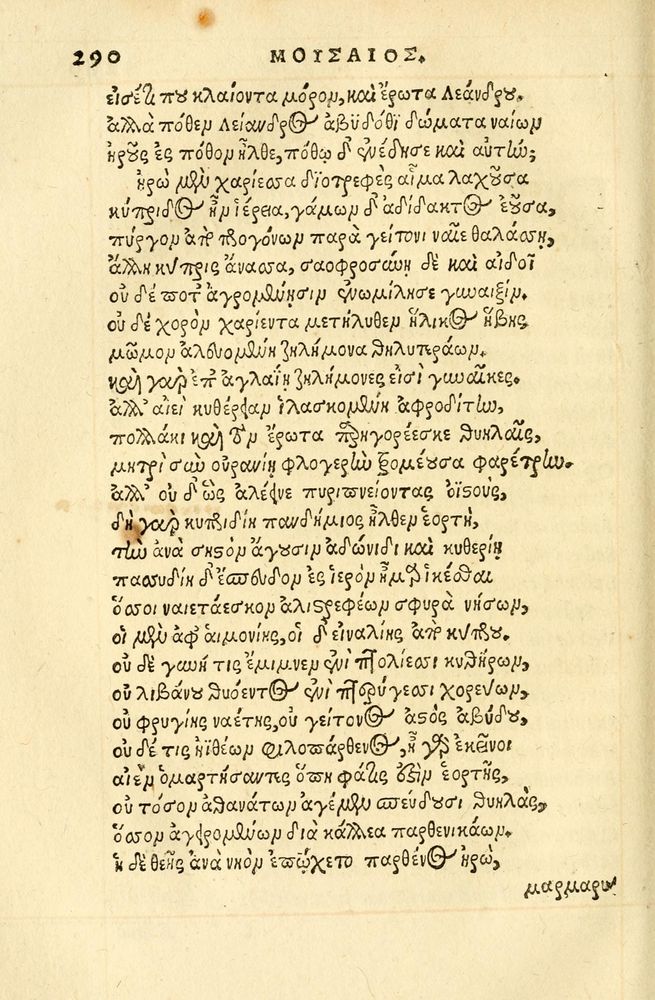 290 ΜΟΥΣΑΙΟΣ.
εἰσέτι που κλαίοντα μόρον, καὶ ἔρωτα Λεάνδρου.
ἀλλὰ πόθεν Λείανδρος ἀβυδόθι δώματα ναίων
ἡροῦς ἐς πόθον ἦλθε, πόθῳ δ' ἐνέδησε καὶ αὐτήν;
ἡρὼ μὲν χαρίεσσα διοτρεφὲς αἷμα λαχοῦσα
κύπριδος ἦν ἱέρεια, γάμων δ' ἀδίδακτος ἐοῦσα,
πύργον ἀπὸ προγόνων παρὰ γείτονι ναῖε θαλάσσῃ,
ἄλλη κύπρις ἄνασσα, σαοφροσύνῃ δὲ καὶ αἰδοῖ
οὐ δέ ποτ' ἀγρομένῃσιν ἐνωμίλησε γυναιξίν.
οὐ δὲ χορὸν χαρίεντα μετήλυθεν ἥλικος ἥβης
μῶμον ἀλευομένη ζηλήμονα θηλυτεράων.
καὶ γὰρ ἐπ' ἀγλαΐῃ ζηλήμονές εἰσι γυναῖκες.
ἀλλ' αἰεὶ κυθέρειαν ἱλασκομένη ἀφροδίτην,
πολλάκι καὶ τὸν ἔρωτα παρηγορέεσκε θυηλαῖς,
μητρὶ σὺν οὐρανίῃ φλογερὴν τρομέουσα φαρέτρην.
ἀλλ' οὐ δ' ὣς ἀλέεινε πυριπνείοντας ὀϊστούς,
δὴ γὰρ κυπριδίη πανδήμιος ἦλθεν ἑορτή,
τὴν ἀνὰ σηστὸν ἄγουσιν ἀδώνιδι καὶ κυθερίῃ
πασσυδίῃ δ' ἔσπευδον ἐς ἱερὸν ἦμαρ ἱκέσθαι
ὅσσοι ναιετάεσκον ἁλιστρεφέων σφυρὰ νήσων,
οἱ μὲν ἀφ' αἱμονίης, οἱ δ' εἰναλίης ἀπὸ κύπρου.
οὐ δὲ γυνή τις ἔμιμνεν ἐνὶ πτολίεσσι κυθήρων,
οὐ λιβάνου θυόεντος ἐνὶ πτερύγεσσι χορεύων,
οὐ φρυγίης ναέτης, οὐ γείτονος ἀστὸς ἀβύδου,
οὐ δέ τις ἠϊθέων φιλοπάρθενος, ἦ γὰρ ἐκεῖνοι
αἰὲν ὁμαρτήσαντες ὅπῃ φάτις ἐστὶν ἑορτῆς,
οὐ τόσον ἀθανάτων ἀγέμεν σπεύδουσι θυηλὰς,
ὅσσον ἀγειρομένων διὰ κάλλεα παρθενικάων.
ἡ δὲ θεῆς ἀνὰ νηὸν ἐπῴχετο παρθένος ἡρὼ,
μαρμαρυ